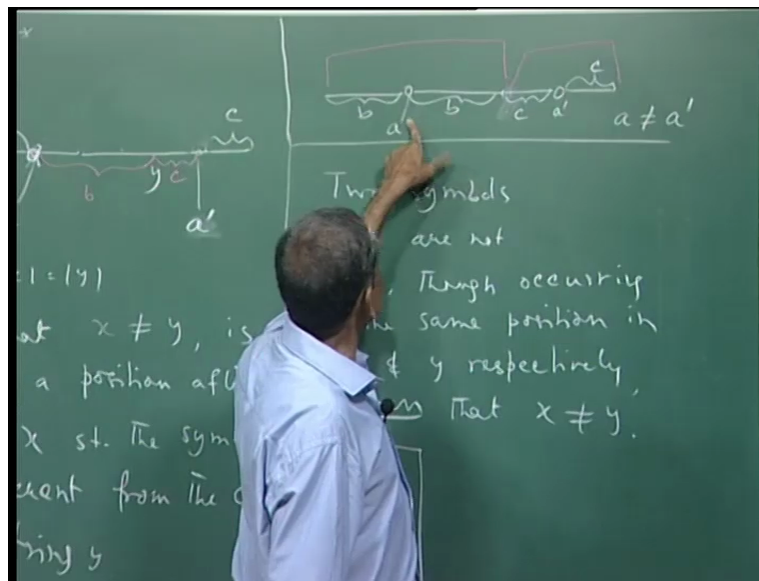 x
c
b
y
c
a'
b
a
b
c
a'
c
a ≠ a'
= 1 = |y|
at x ≠ y, is
a position aft
x st. The sym
erent from The
ring y
Two symbols
are not
, Though occurring
same position in
& y respectively,
That x ≠ y.